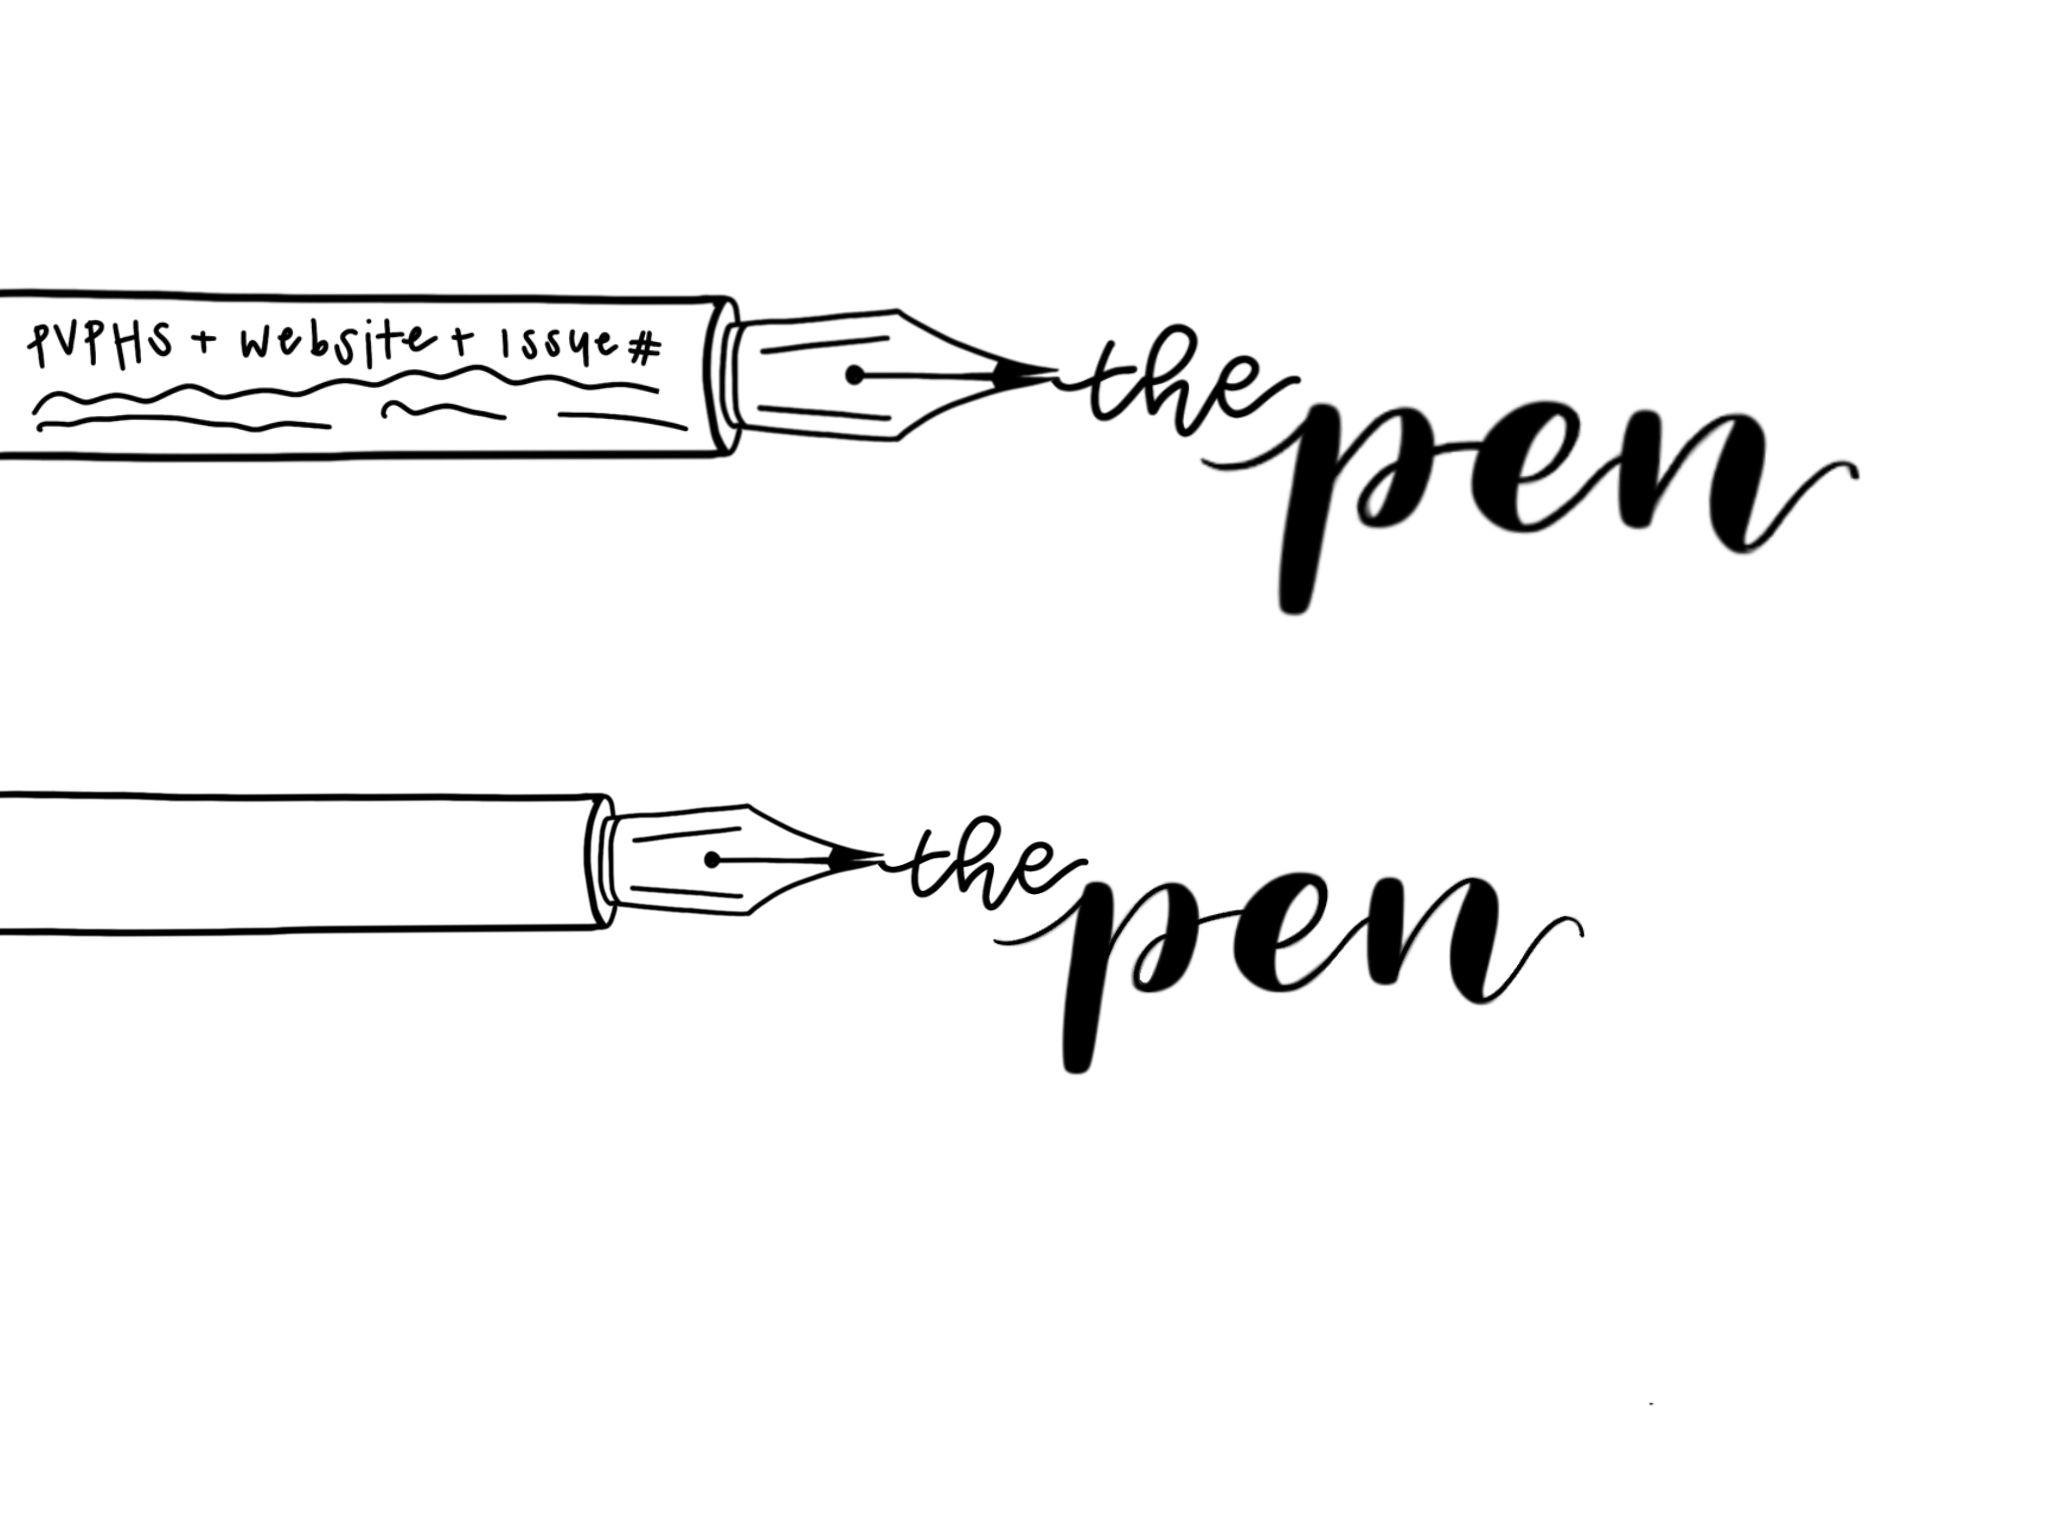 PVPHS + website + issue #
the
pen
the
pen